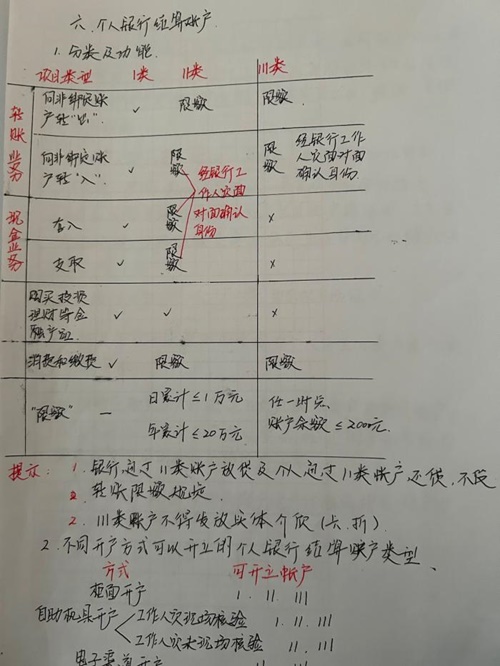 六.个人银行结算账户
1.分类及功能.
项目类型 I类 II类 III类
转账业务
向非绑定账户转"出" ✓ 限额 限额
向非绑定账户转"入" ✓ 限额 限额 经银行工作人员面对面确认身份
经银行工作人员面对面确认身份
现金业务
存入 ✓ 限额 ×
支取 ✓ 限额 ×
购买投资理财等金融产品 ✓ ✓ ×
消费和缴费 ✓ 限额 限额
"限额" — 日累计≤1万元 任一时点
年累计≤20万元 账户余额≤2000元.
提示: 1.银行通过II类账户放贷及个人通过II类账户还贷,不受
转账限额规定
2. III类账户不得发放实体介质(卡、折)
2.不同开户方式可以开立的个人银行结算账户类型.
方式 可开立帐户
柜面开户 I. II. III
自助机具开户 工作人员现场核验 I. II. III
工作人员未现场核验 II. III
电子渠道开户